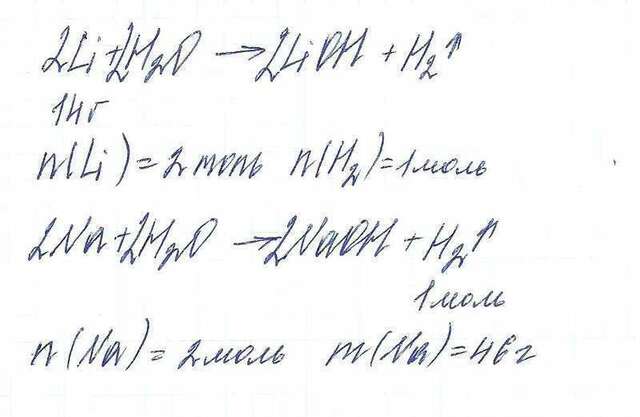 2Li+2H₂O → 2LiOH + H₂↑
14г
n(Li)=2моль n(H₂)=1моль
2Na+2H₂O → 2NaOH + H₂↑
1моль
n(Na)=2моль m(Na)=46г